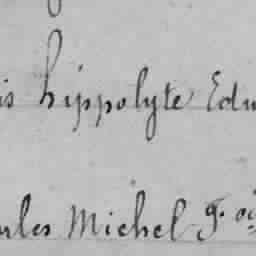 is hippolyte Edu
ules Michel